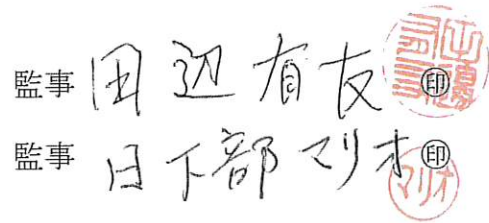 監事 田辺有友 ㊞
監事 日下部マリオ ㊞
マリオ